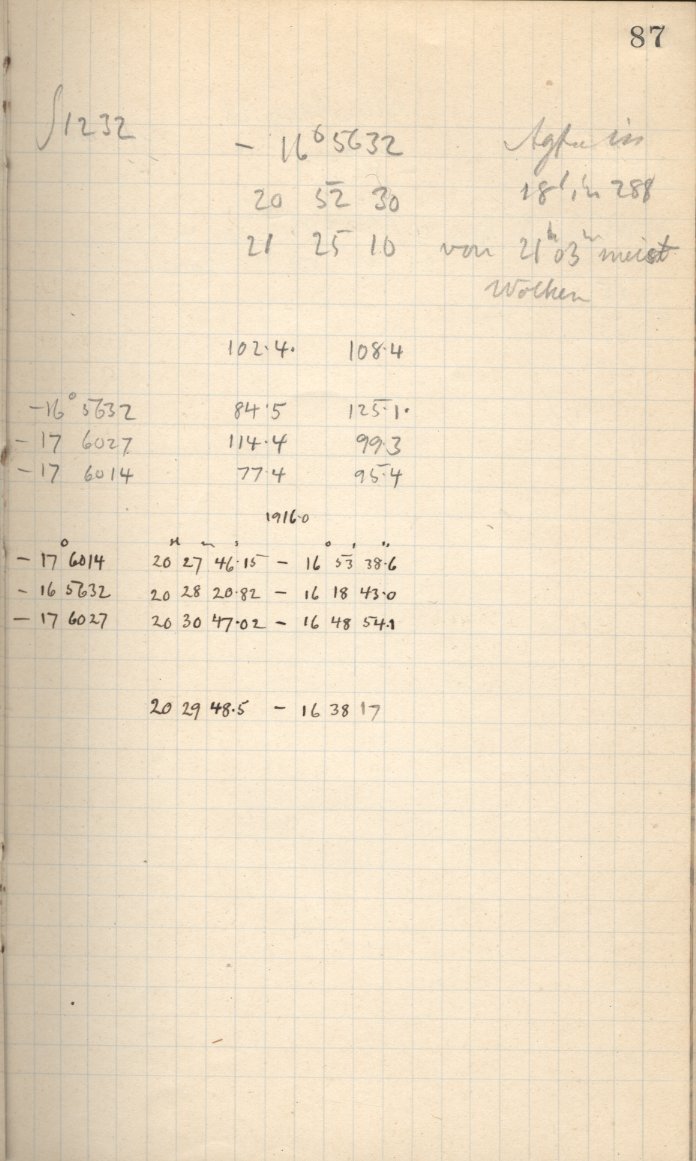 87
1232 - 16° 5632 Agfa in
20 52 30
21 25 10 von 21ʰ 03ᵐ meist
Wolken
102.4. 108.4
-16° 5632 84.5 125.1.
-17 6027 114.4 99.3
-17 6014 77.4 95.4
1916.0
H m s ° ' "
- 17° 6014 20 27 46.15 - 16 53 38.6
- 16 5632 20 28 20.82 - 16 18 43.0
- 17 6027 20 30 47.02 - 16 48 54.1
20 29 48.5 - 16 38 17